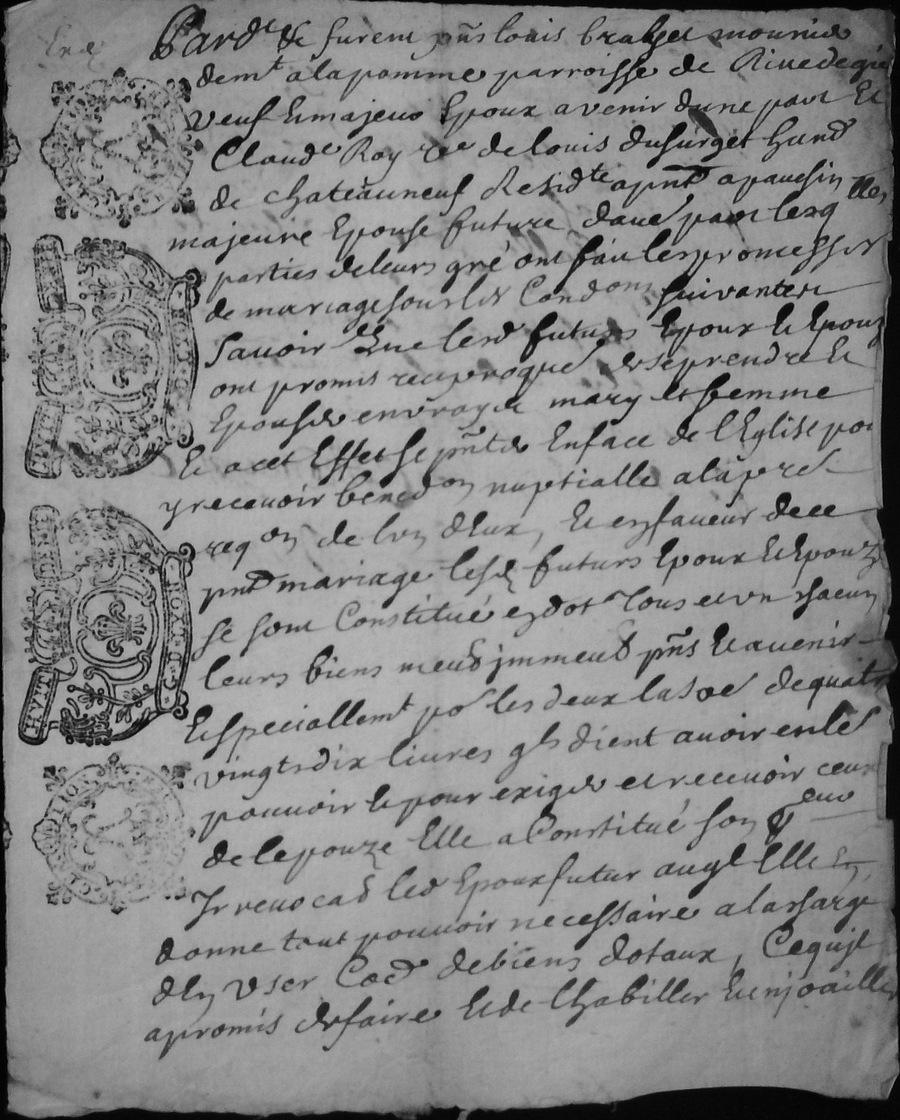 Pard.t & furent pñs louis mounier
dem.t a la pomme parroisse de Rivedegie
veuf & majeur Epoux avenir dune part Et
Claud.e Roy de louis dusurget hand
de chateauneuf Resid.te apnt a pavesin
majeure Epouse future dau.e part lesq.lles
parties deleurs gré ont fait les promesses
de mariage sous les Condons suivantes
Savoir Que lesd futurs Epoux & Epouze
ont promis reciproque.t de se prendre Et
Epouser en vray & mary et femme
Et a cet Effet se pñter Enface de l'Eglise pour
y recevoir bened.on nuptialle a la p.re
req.on de lun dEux, Et en faveur de ce
pnt mariage lesd futurs Epoux & Epouze
se sont Constitué en dot Tous et un chacun
leurs biens meub jmmeub pñs Et avenir
Et speciallem.t po.r les deux la so.e de quatre
vingts dix livres qls dient avoir en le
pouvoir & pour exiger et recevoir ceux
de lepouze Elle a Constitué son
Irrevocab led Epoux futur auql Elle En
donne tout pouvoir necessaire a la charge
dEn user de biens dotaux, Cequjl
a promis de faire & de lhabiller & enjoailler
HVIT DENIE
MOYEN P.
HVIT DENIE
MOYEN P.